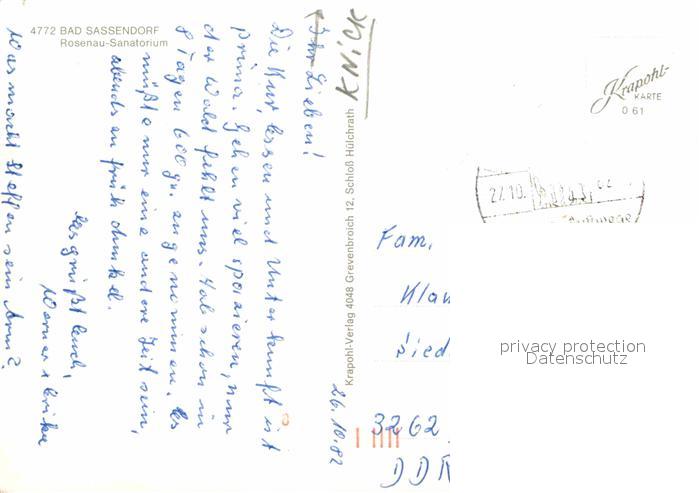 4772 BAD SASSENDORF
Rosenau-Sanatorium
Krapohl-
KARTE
0 61
KNICK
Ihr Lieben!
Die Kur, Essen und Unterkunft ist
prima. Gehen viel spazieren, nur
der Wald fehlt uns. Hab schon in
8 Tagen 600 gr. angenommen. Es
müßte nur eine andere Zeit sein,
abends zu früh dunkel.
Es grüßt Euch,
Werner + Erika
Was macht Steffen sein Arm?
26.10.82
Krapohl-Verlag 4048 Grevenbroich 12, Schloß Hülchrath
27.10.
Fam.
Klau
Sied
3262
DDR
privacy protection
Datenschutz